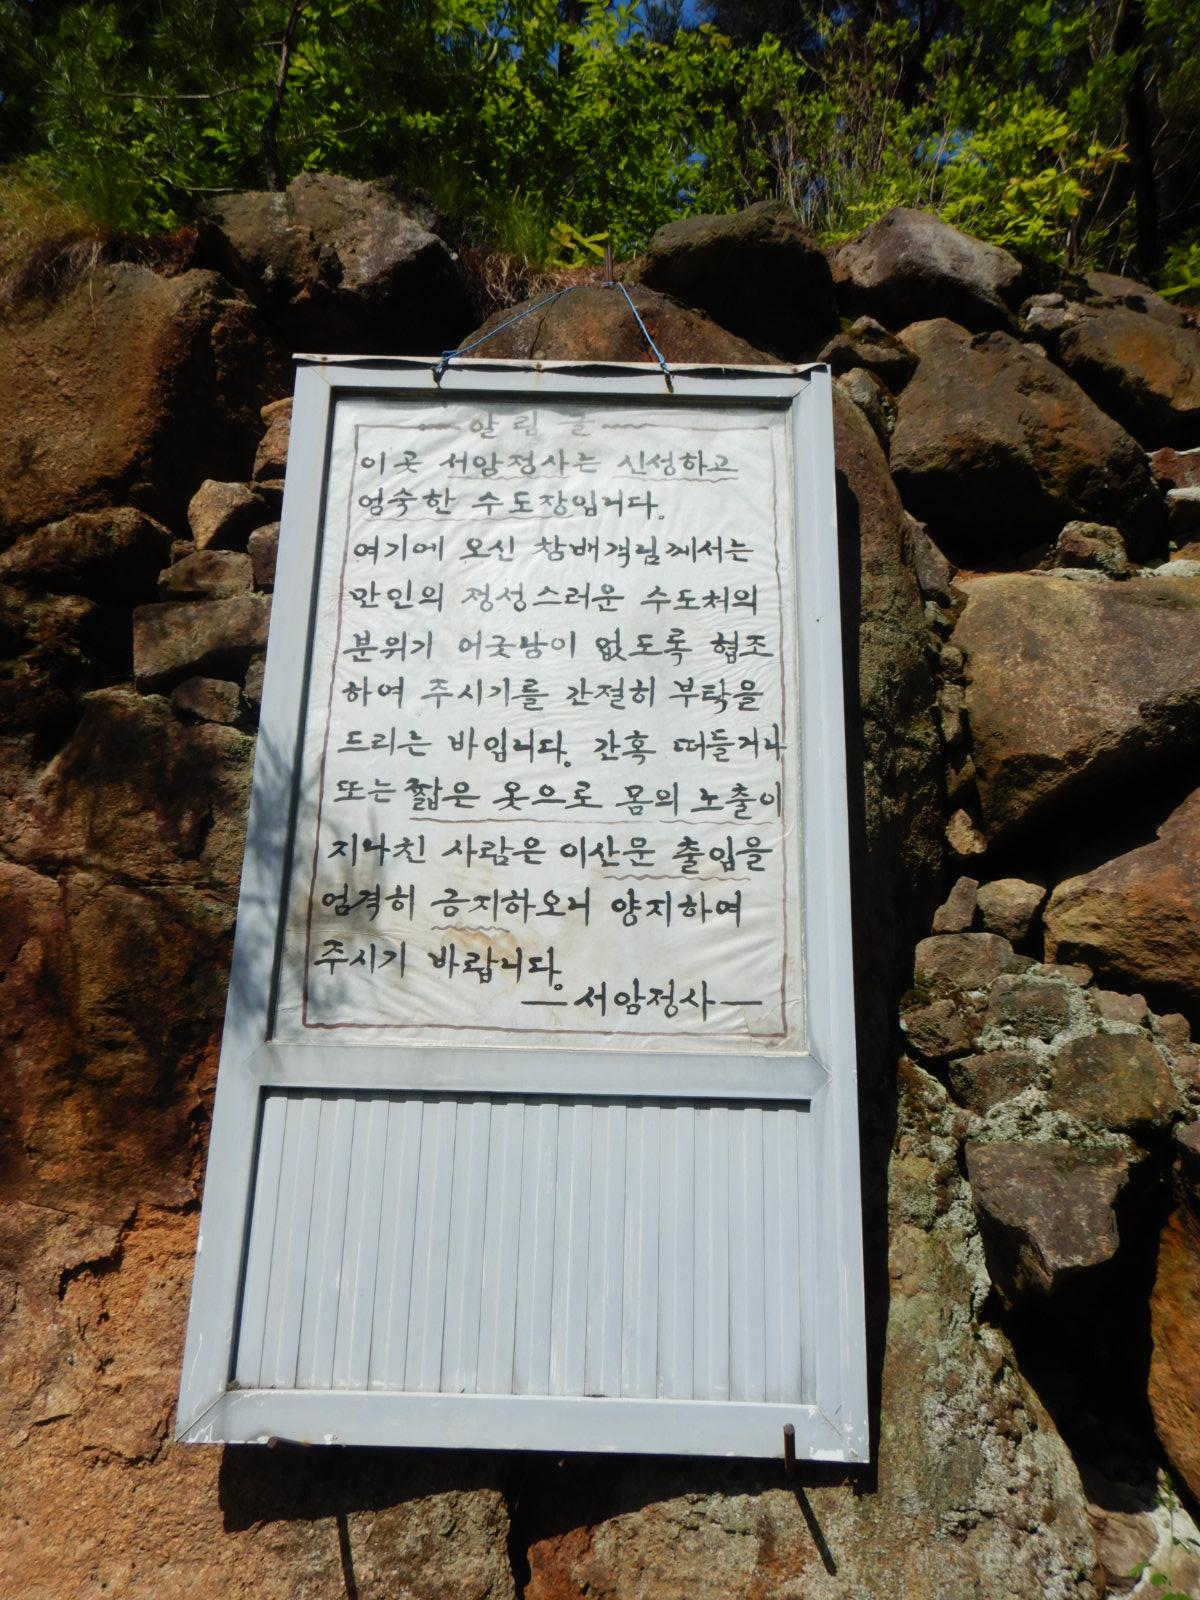 알림글
이 곳 서암정사는 신성하고
엄숙한 수도장입니다.
여기에 오신 참배객님께서는
만인의 정성스러운 수도처의
분위기 어긋남이 없도록 협조
하여 주시기를 간절히 부탁을
드리는 바입니다. 간혹 떠들거나
또는 짧은 옷으로 몸의 노출이
지나친 사람은 이산문 출입을
엄격히 금지하오니 양지하여
주시기 바랍니다.
— 서암정사 —